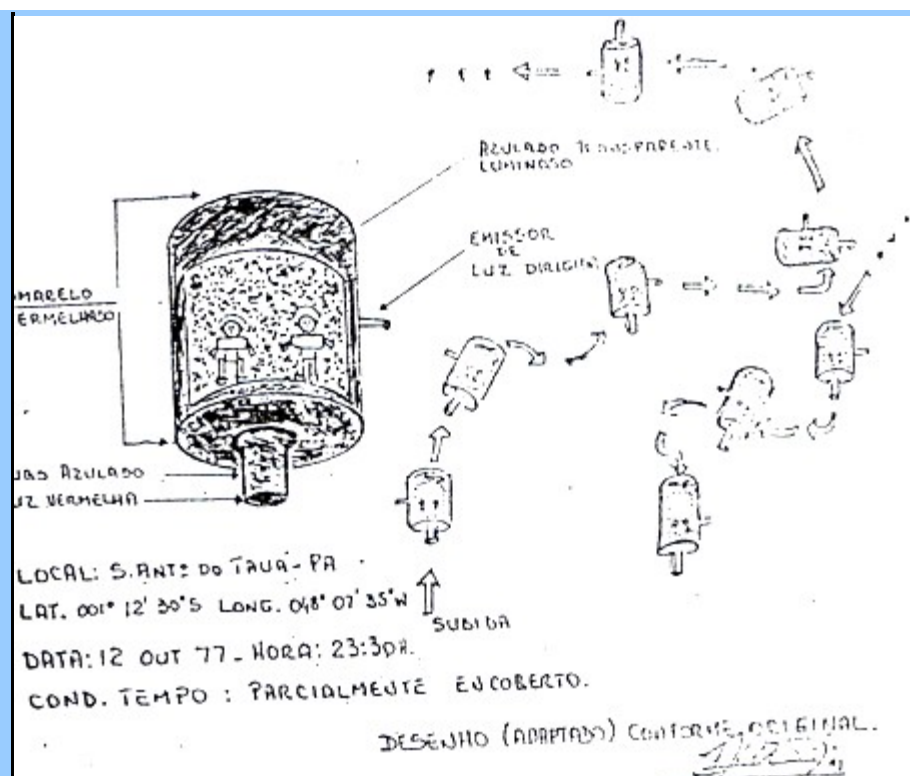 AZULADO TRANSPARENTE
LUMINOSO
EMISSOR
DE
LUZ DIRIGIDA
AMARELO
ERMELHADO
AZULADO
UZ VERMELHA
SUBIDA
LOCAL: S. ANTº DO TAUÁ-PA.
LAT. 001° 12' 30"S LONG. 048° 07' 35"W
DATA: 12 OUT 77 - HORA: 23:30H.
COND. TEMPO: PARCIALMENTE ENCOBERTO.
DESENHO (ADAPTADO) CONFORME ORIGINAL.